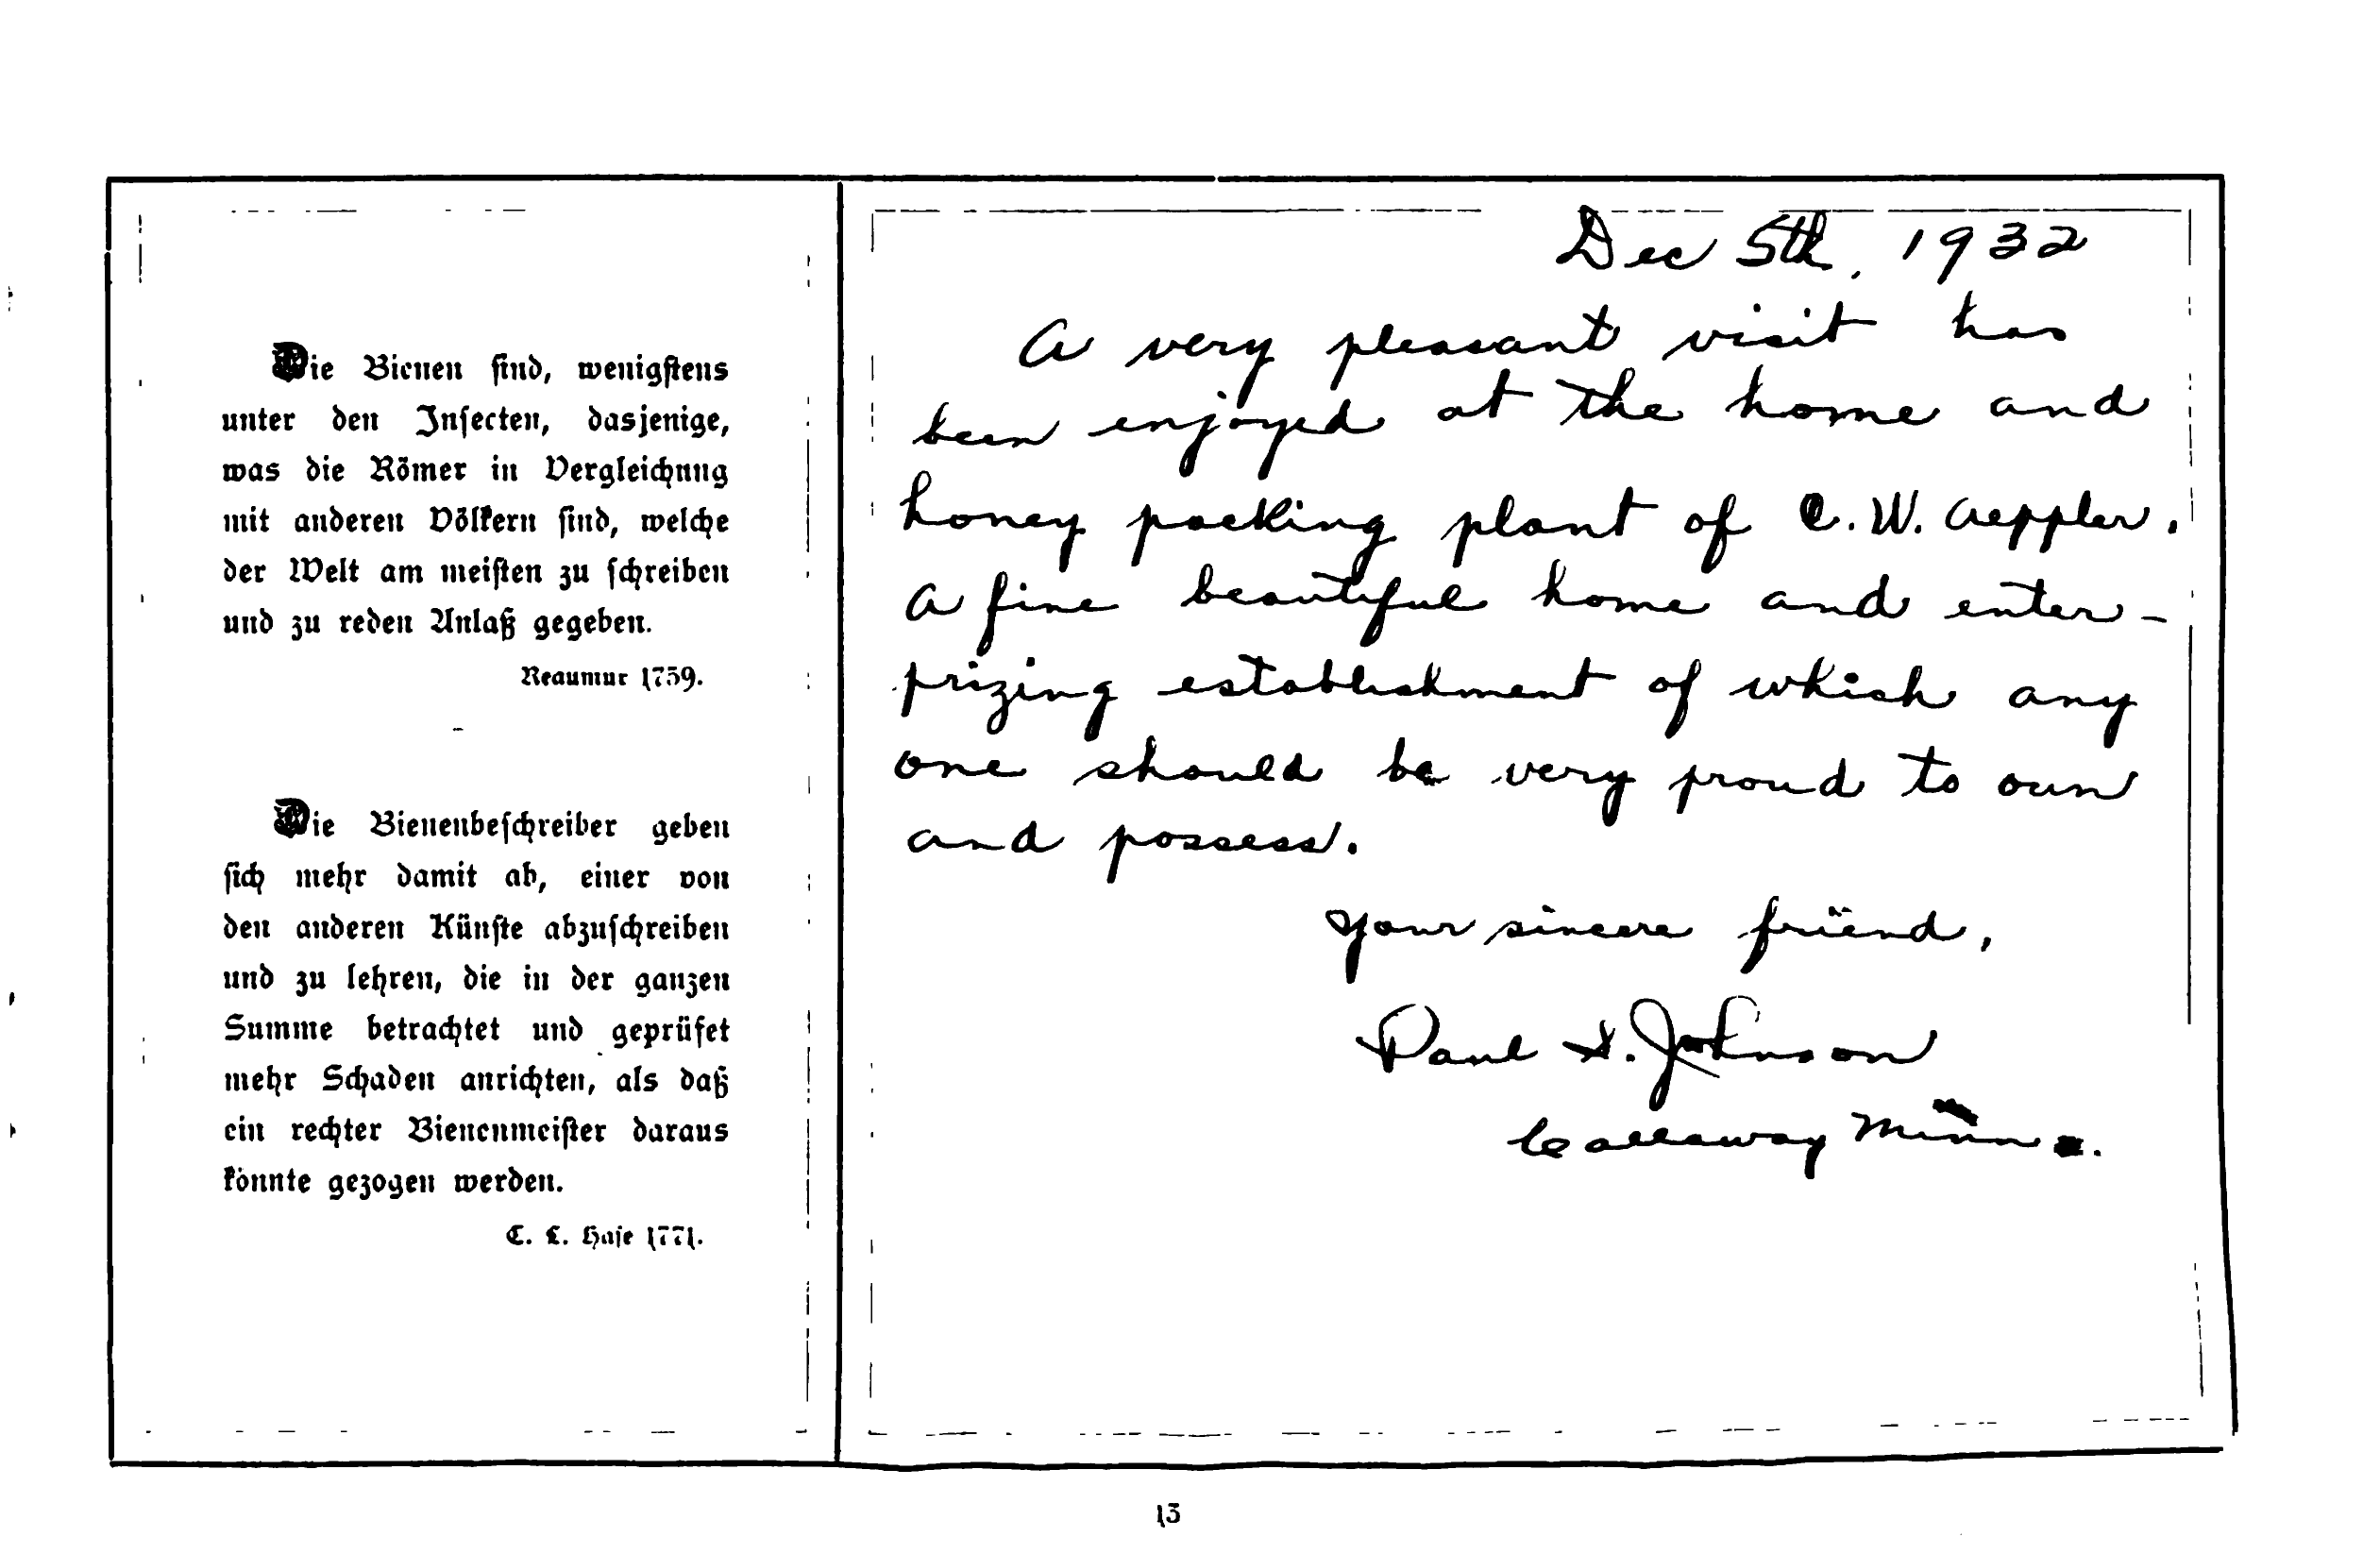 Die Bienen sind, wenigstens
unter den Insecten, dasjenige,
was die Römer in Vergleichung
mit anderen Völkern sind, welche
der Welt am meisten zu schreiben
und zu reden Anlaß gegeben.
Reaumur 1759.
Die Bienenbeschreiber geben
sich mehr damit ab, einer von
den anderen Künste abzuschreiben
und zu lehren, die in der ganzen
Summe betrachtet und geprüfet
mehr Schaden anrichten, als daß
ein rechter Bienenmeister daraus
könnte gezogen werden.
C. L. Hase 1771.
Dec 5th, 1932
A very pleasant visit has
been enjoyed at the home and
honey packing plant of C. W. Aeppler.
A fine beautiful home and enter-
prizing establishment of which any
one should be very proud to own
and possess.
Your sincere friend,
Paul S. Johnson
Callaway Minn.
13